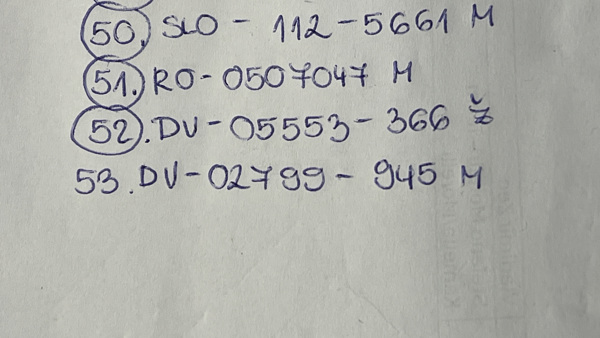 50. SLO - 112-5661 M
51. RO-0507047 M
52. DV-05553-366 Ž
53. DV-02799-945 M